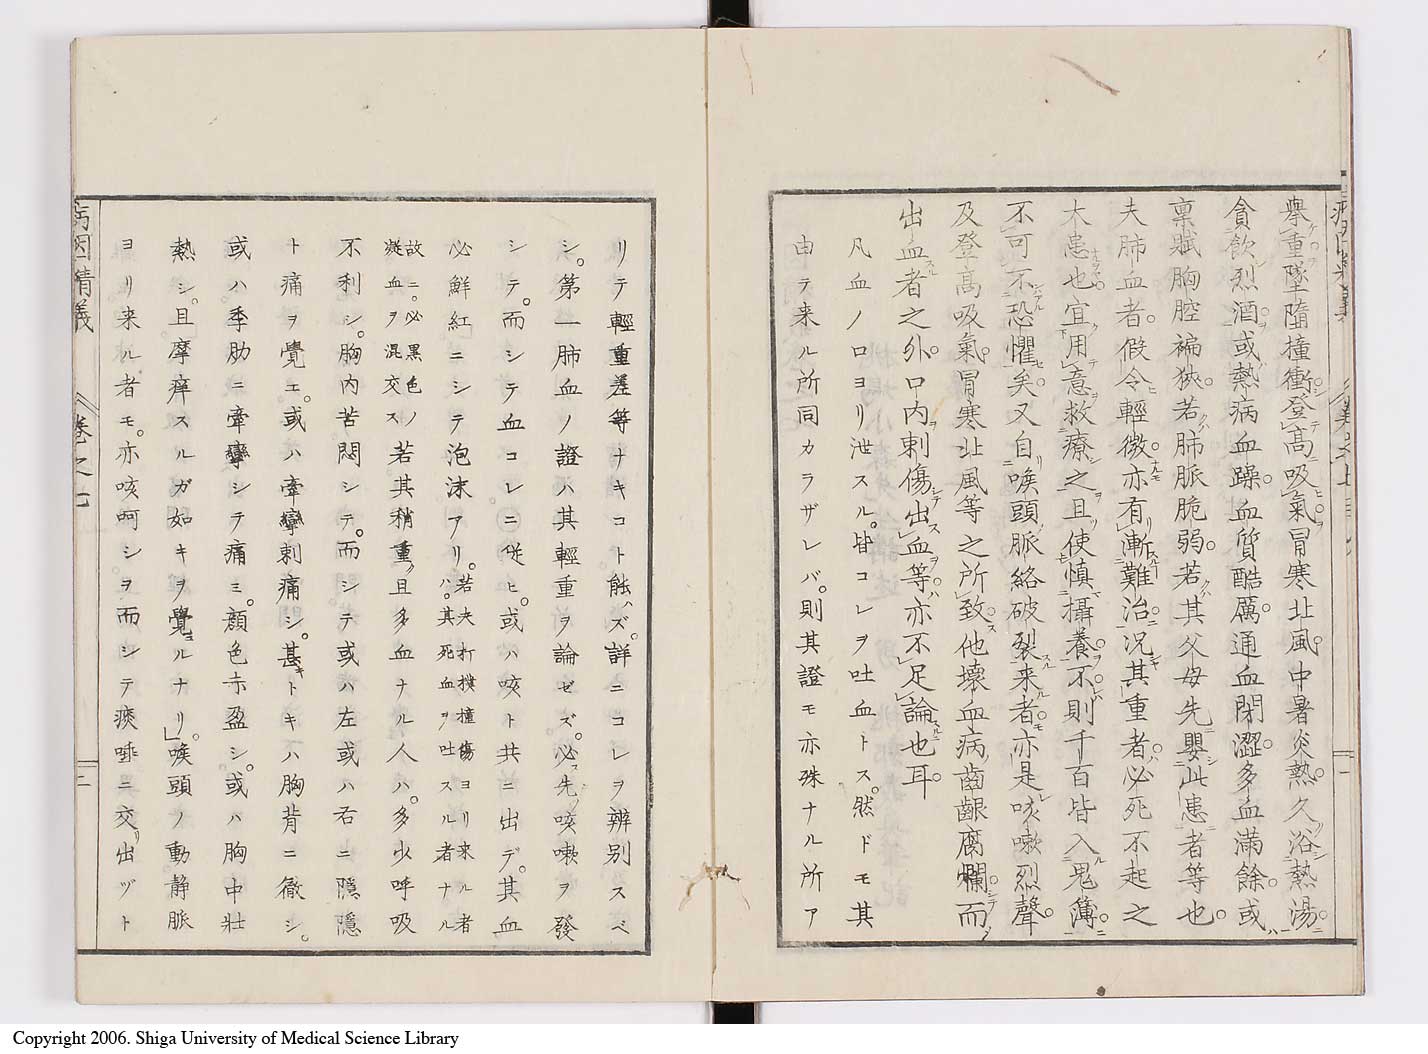 擧重墜墮撞衝登高吸氣冒寒北風中暑炎熱久浴熱湯
貪飮烈酒或熱病血躁血質酷厲通血閉澀多血滿餘或
稟賦胸腔褊狹若肺脈脆弱若其父母先嬰此患者等也
夫肺血者假令輕微亦有漸難治況其重者必死不起之
大患也宜用意救療之且使愼攝養不則千百皆入鬼簿
不可不恐懼矣又自喉頭脈絡破裂来者亦是咳嗽烈聲
及登高吸氣冒寒北風等之所致他壞血病齒齦腐爛而
出血者之外口内刺傷出血等亦不足論也耳
凡血ノ口ヨリ泄スル。皆コレヲ吐血トス。然ドモ其
由テ来ル所同カラザレバ。則其證モ亦殊ナル所ア
リテ輕重差等ナキコト能ハズ。詳ニコレヲ辨別スベ
シ。第一肺血ノ證ハ其輕重ヲ論ゼズ。必ス先ツ咳嗽ヲ發
シテ。而シテ血コレニ従ヒ。或ハ咳ト共ニ出デ。其血
必鮮紅ニシテ泡沫アリ。若夫打撲撞傷ヨリ来ル者ハ。其死血ヲ吐スル者ナル
故ニ。必黒色ノ凝血ヲ混交ス若其稍重ク且多血ナル人ハ。多少呼吸
不利シ。胸内苦悶シテ。而シテ或ハ左或ハ右ニ隱隱
ト痛ヲ覺エ。或ハ牽攣刺痛シ。甚キトキハ胸背ニ徹シ。
或ハ季肋ニ牽攣シテ痛ミ。顔色赤盈シ。或ハ胸中壯
熱シ。且摩痒スルガ如キヲ覺ヨルナリ。喉頭ノ動靜脈
ヨリ来ル者モ。亦咳呵シヲ而シテ痰唾ニ交リ出ヅト
病因精義
卷之七
二